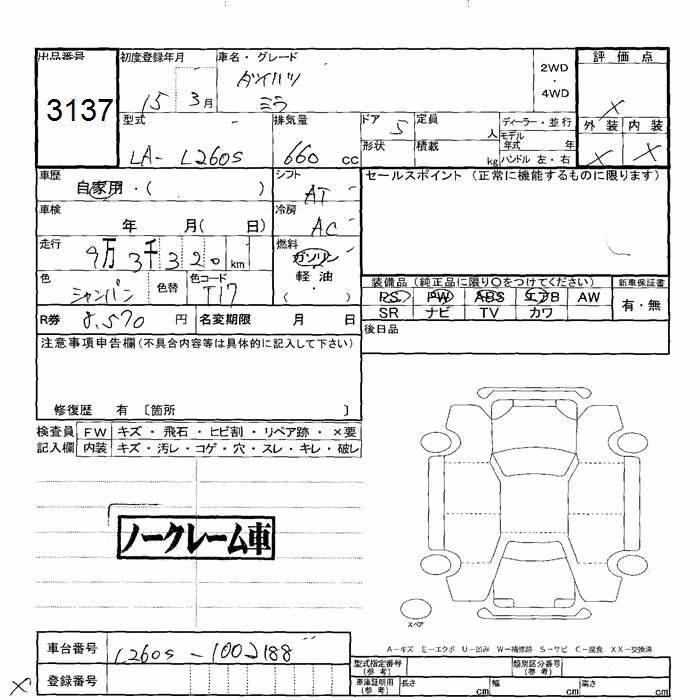 出品番号 初度登録年月 車名・グレード 評価点
3137 15 3月 ダイハツ ミラ 2WD・4WD X
型式 排気量 ドア 5 定員 人 ディーラー・並行 外装 内装
LA- L260S 660 cc 形状 積載 kg モデル年式 年 ハンドル 左・右 X X
車歴 自家用・( ) シフト AT セールスポイント (正常に機能するものに限ります)
車検 年 月( 日) 冷房 AC
走行 9万3千320km 燃料 ガソリン 軽油 ( )
色 シャンパン 色替 色コード T17
装備品(純正品に限り○をつけてください) 新車保証書
PS PW ABS エアB AW 有・無
SR ナビ TV カワ
R券 8,570 円 名変期限 月 日 後日品
注意事項申告欄(不具合内容等は具体的に記入して下さい)
修復歴 有 〔箇所 〕
検査員 FW キズ・飛石・ヒビ割・リペア跡・×要
記入欄 内装 キズ・汚レ・コゲ・穴・スレ・キレ・破レ
ノークレーム車
スペア
A-キズ E-エクボ U-凹み W-補修跡 S-サビ C-腐食 XX-交換済
車台番号 L260S-1002188
登録番号
X
型式指定番号(参考) 類別区分番号(参考)
車庫証明用(参考) 長さ cm 幅 cm 高さ cm